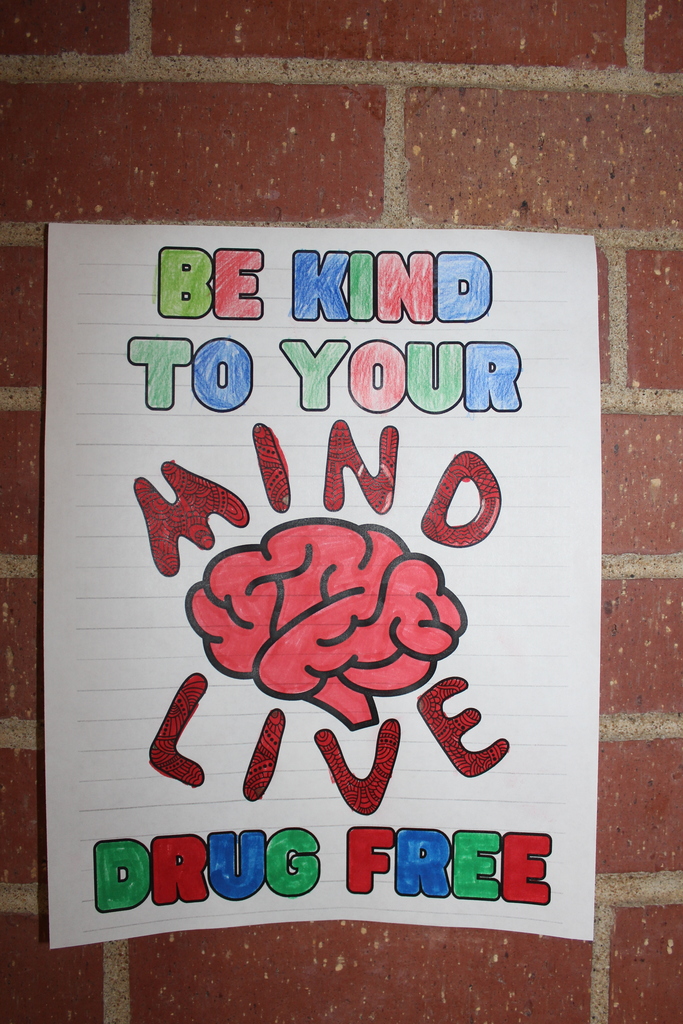 BE KIND
TO YOUR
MIND
LIVE
DRUG FREE